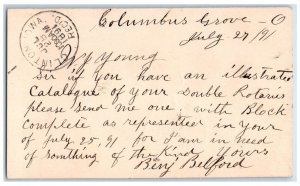 Columbus Grove - O
July 27/91
CLINTON, IOWA.
REC'D.
My Young
Sir if you have an illustrated
Catalogue of your Double Rotaries
please send me one. with Block
Complete as represented in your
of July 25, 91 for I am in need
of somthing of the kind Yours
Benj Belford